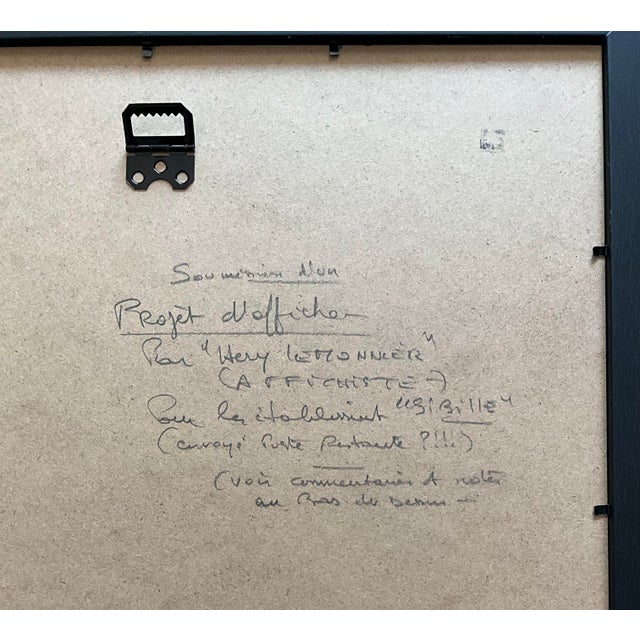 Soumission d'un
Projet d'affiche
Par "Hery LEMONNIER"
(AFFICHISTE-)
Pour les établissement "SIBILLE"
(envoyé Poste Restante ?!!!)
(voir commentaires et notes
au Bas du dessin -